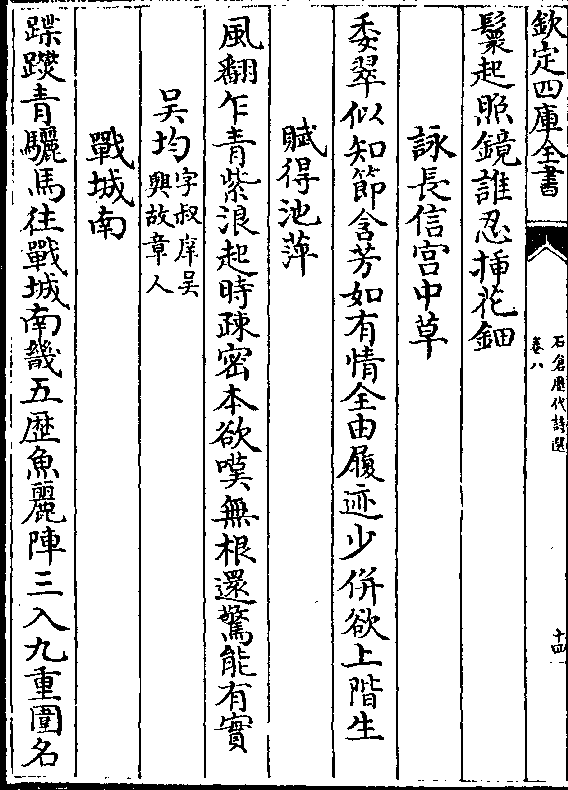 欽定四庫全書
石倉歷代詩選
卷八
十四
鬟起照鏡誰忍揷花鈿
詠長信宫中草
委翠似知節含芳如有情全由履迹少併欲上階生
賦得池萍
風翻乍青紫浪起時疎密本欲嘆無根還驚能有實
吴均字叔庠吴興故章人
戰城南
蹀躞青驪馬往戰城南畿五歴魚麗陣三入九重圍名